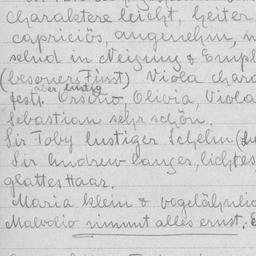 Charaktere leicht, heiter
capriciös, angenehm,
selnd in Neigung &
(besoners Fürst) Viola
aber lustig
fest. Orsino, Olivia, Viola
Sebastian sehr schön.
Sir Toby lustiger Schelm
Sir Andrew langer, lichtes
glattes Haar.
Maria klein &
Malvolio nimmt alles ernst.